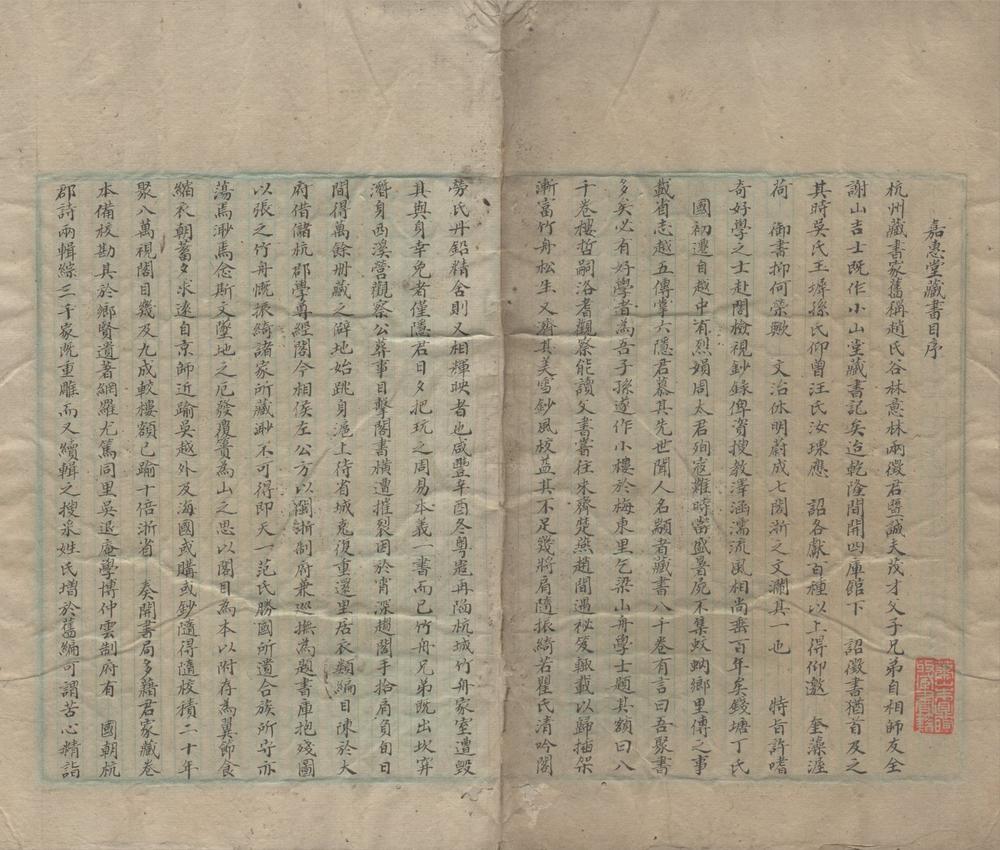 嘉惠堂藏書目序
杭州藏書家舊稱趙氏谷林意林兩徵君暨誠夫茂才父子兄弟自相師友全
謝山吉士既作小山堂藏書記矣迨乾隆間開四庫館下 詔徵書猶首及之
其時吳氏玉墀孫氏仰曾汪氏汝瑮應 詔各獻百種以上得仰邀 奎藻渥
荷 御書抑何榮歟 文治休明蔚成七閣浙之文瀾其一也 特旨許嗜
奇好學之士赴閣檢視鈔錄俾資搜教澤涵濡流風相尚垂百年矣錢塘丁氏
國初遷自越中有烈婦周太君殉寇難時當盛暑屍不集蚊蚋鄉里傳之事
載省志越五傳掌六隱君慕其先世聞人名顗者藏書八千卷有言曰吾聚書
多矣必有好學者為吾子孫遂作小樓於梅東里乞梁山舟學士題其額曰八
千卷樓哲嗣洛耆觀察能讀父書嘗往來齊楚燕趙間遇秘笈輒載以歸插架
漸富竹舟松生又濟其美雪鈔風校益其不足幾將肩隨振綺若瞿氏清吟閣
勞氏丹鉛精舍則又相輝映者也咸豐辛酉冬粵匪再陷杭城竹舟家室遭毀
其與身幸免者僅隱君日夕把玩之周易本義一書而已竹舟兄弟既出坎穽
潛身西溪營觀察公葬事目擊閣書橫遭摧裂因於宵深趨閣手拾肩負旬日
間得萬餘冊藏之僻地始跳身滬上待省城克復重還里居衣類編目陳於大
府借儲杭郡學尊經閣今相侯左公方以閩浙制府兼巡撫為題書庫抱殘圖
以張之竹舟慨振綺諸家所藏渺不可得即天一范氏勝國所遺合族所守亦
蕩焉渺焉念斯文墜地之厄發覆簣為山之思以閣目為本以附存為翼節食
縮衣朝蓄夕求遠自京師近踰吳越外及海國或購或鈔隨得隨校積二十年
聚八萬視閣目幾及九成較樓額已踰十倍浙省 奏開書局多藉君家藏卷
本備校勘其於鄉賢遺著網羅尤篤同里吳退庵學博仲雲制府有 國朝杭
郡詩兩輯綜三千家既重雕而又續輯之搜采姓氏增於舊編可謂苦心精詣